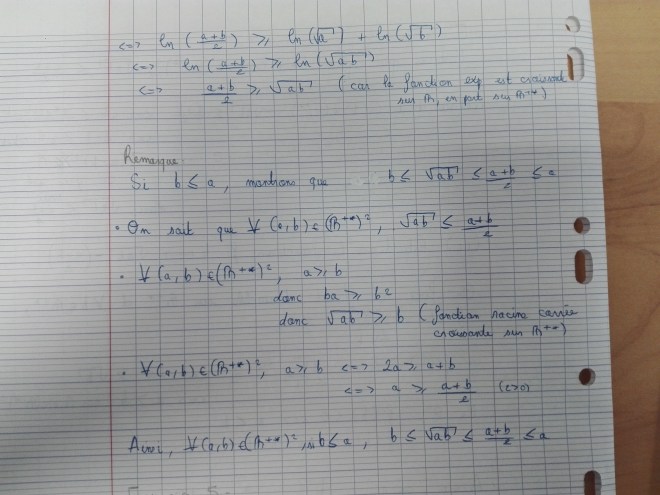 <=> ln (a+b/2) ≥ ln(√a) + ln(√b)
<=> ln (a+b/2) ≥ ln(√ab)
<=> a+b/2 ≥ √ab (car la fonction exp est croissante
sur ℝ, en part sur ℝ+*)
Remarque:
Si b ≤ a, montrons que b ≤ √ab ≤ a+b/2 ≤ a
• On sait que ∀ (a,b) ∈ (ℝ+*)², √ab ≤ a+b/2
• ∀ (a,b) ∈ (ℝ+*)², a ≥ b
donc ba ≥ b²
donc √ab ≥ b (fonction racine carrée
croissante sur ℝ+*)
• ∀(a,b) ∈ (ℝ+*)², a ≥ b <=> 2a ≥ a+b
<=> a ≥ a+b/2 (2>0)
Ainsi, ∀(a,b) ∈ (ℝ+*)², si b ≤ a, b ≤ √ab ≤ a+b/2 ≤ a